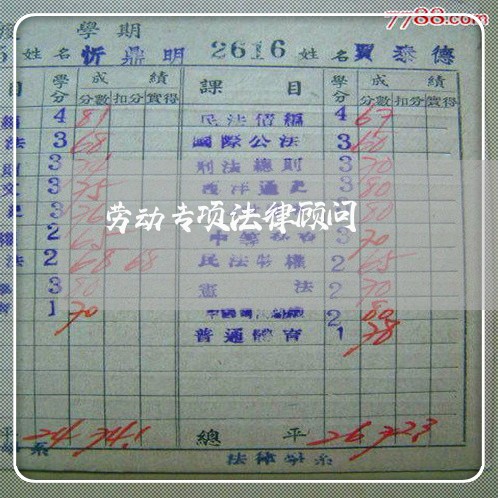 7788.com
學期
姓名 忻鼎明 2616 姓名 賈泰德
目 學分 成績 課目 學分 成績
分數 扣分 實得 分數 扣分 實得
4 81 民法債編 4 67
法 3 68 國際公法 3 60
3 刑法總則 3 70
3 75 西洋通史 3 80
3 3 80
2 65 3 70
法 2 68 68 民法物權 2 65
3 80 憲法 2 70
1 70 2 80
普通體育 1 78
劳动专项法律顾问
平 24 74.1 總平 26 72.3
系 法律學系